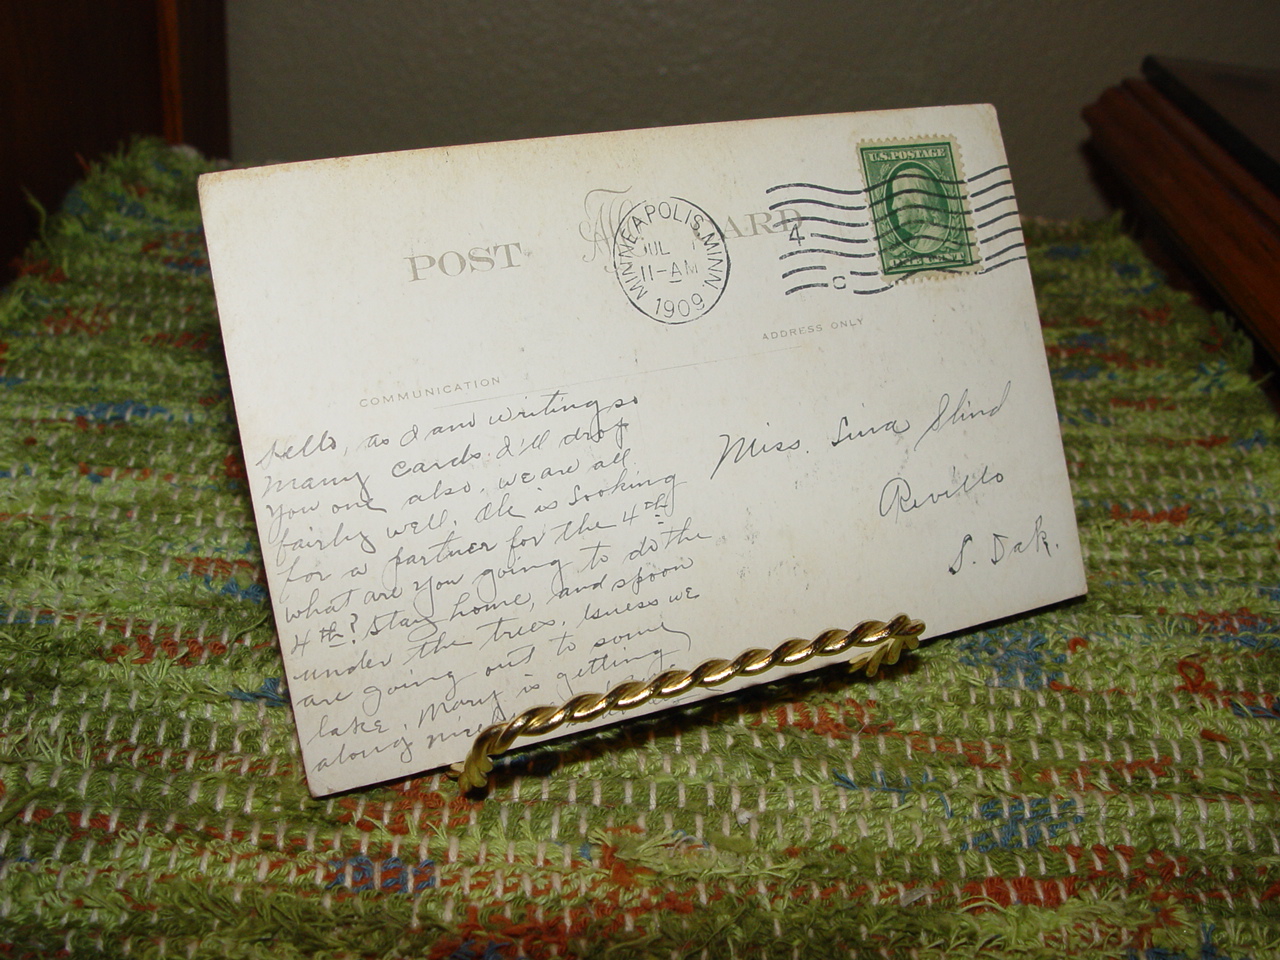 U.S. POSTAGE
ONE CENT
POST CARD
MINNEAPOLIS, MINN.
JUL 1
11-AM
1909
4
C
ADDRESS ONLY
COMMUNICATION
hello, as I am writing so
many cards. I'll drop
you one also. we are all
fairly well. Ole is looking
for a partner for the 4th
what are you going to do the
4th? Stay home, and spoon
under the trees. Guess we
are going out to some
lake, Mary is getting
along nice
Miss. Lina
Revillo
S. Dak.